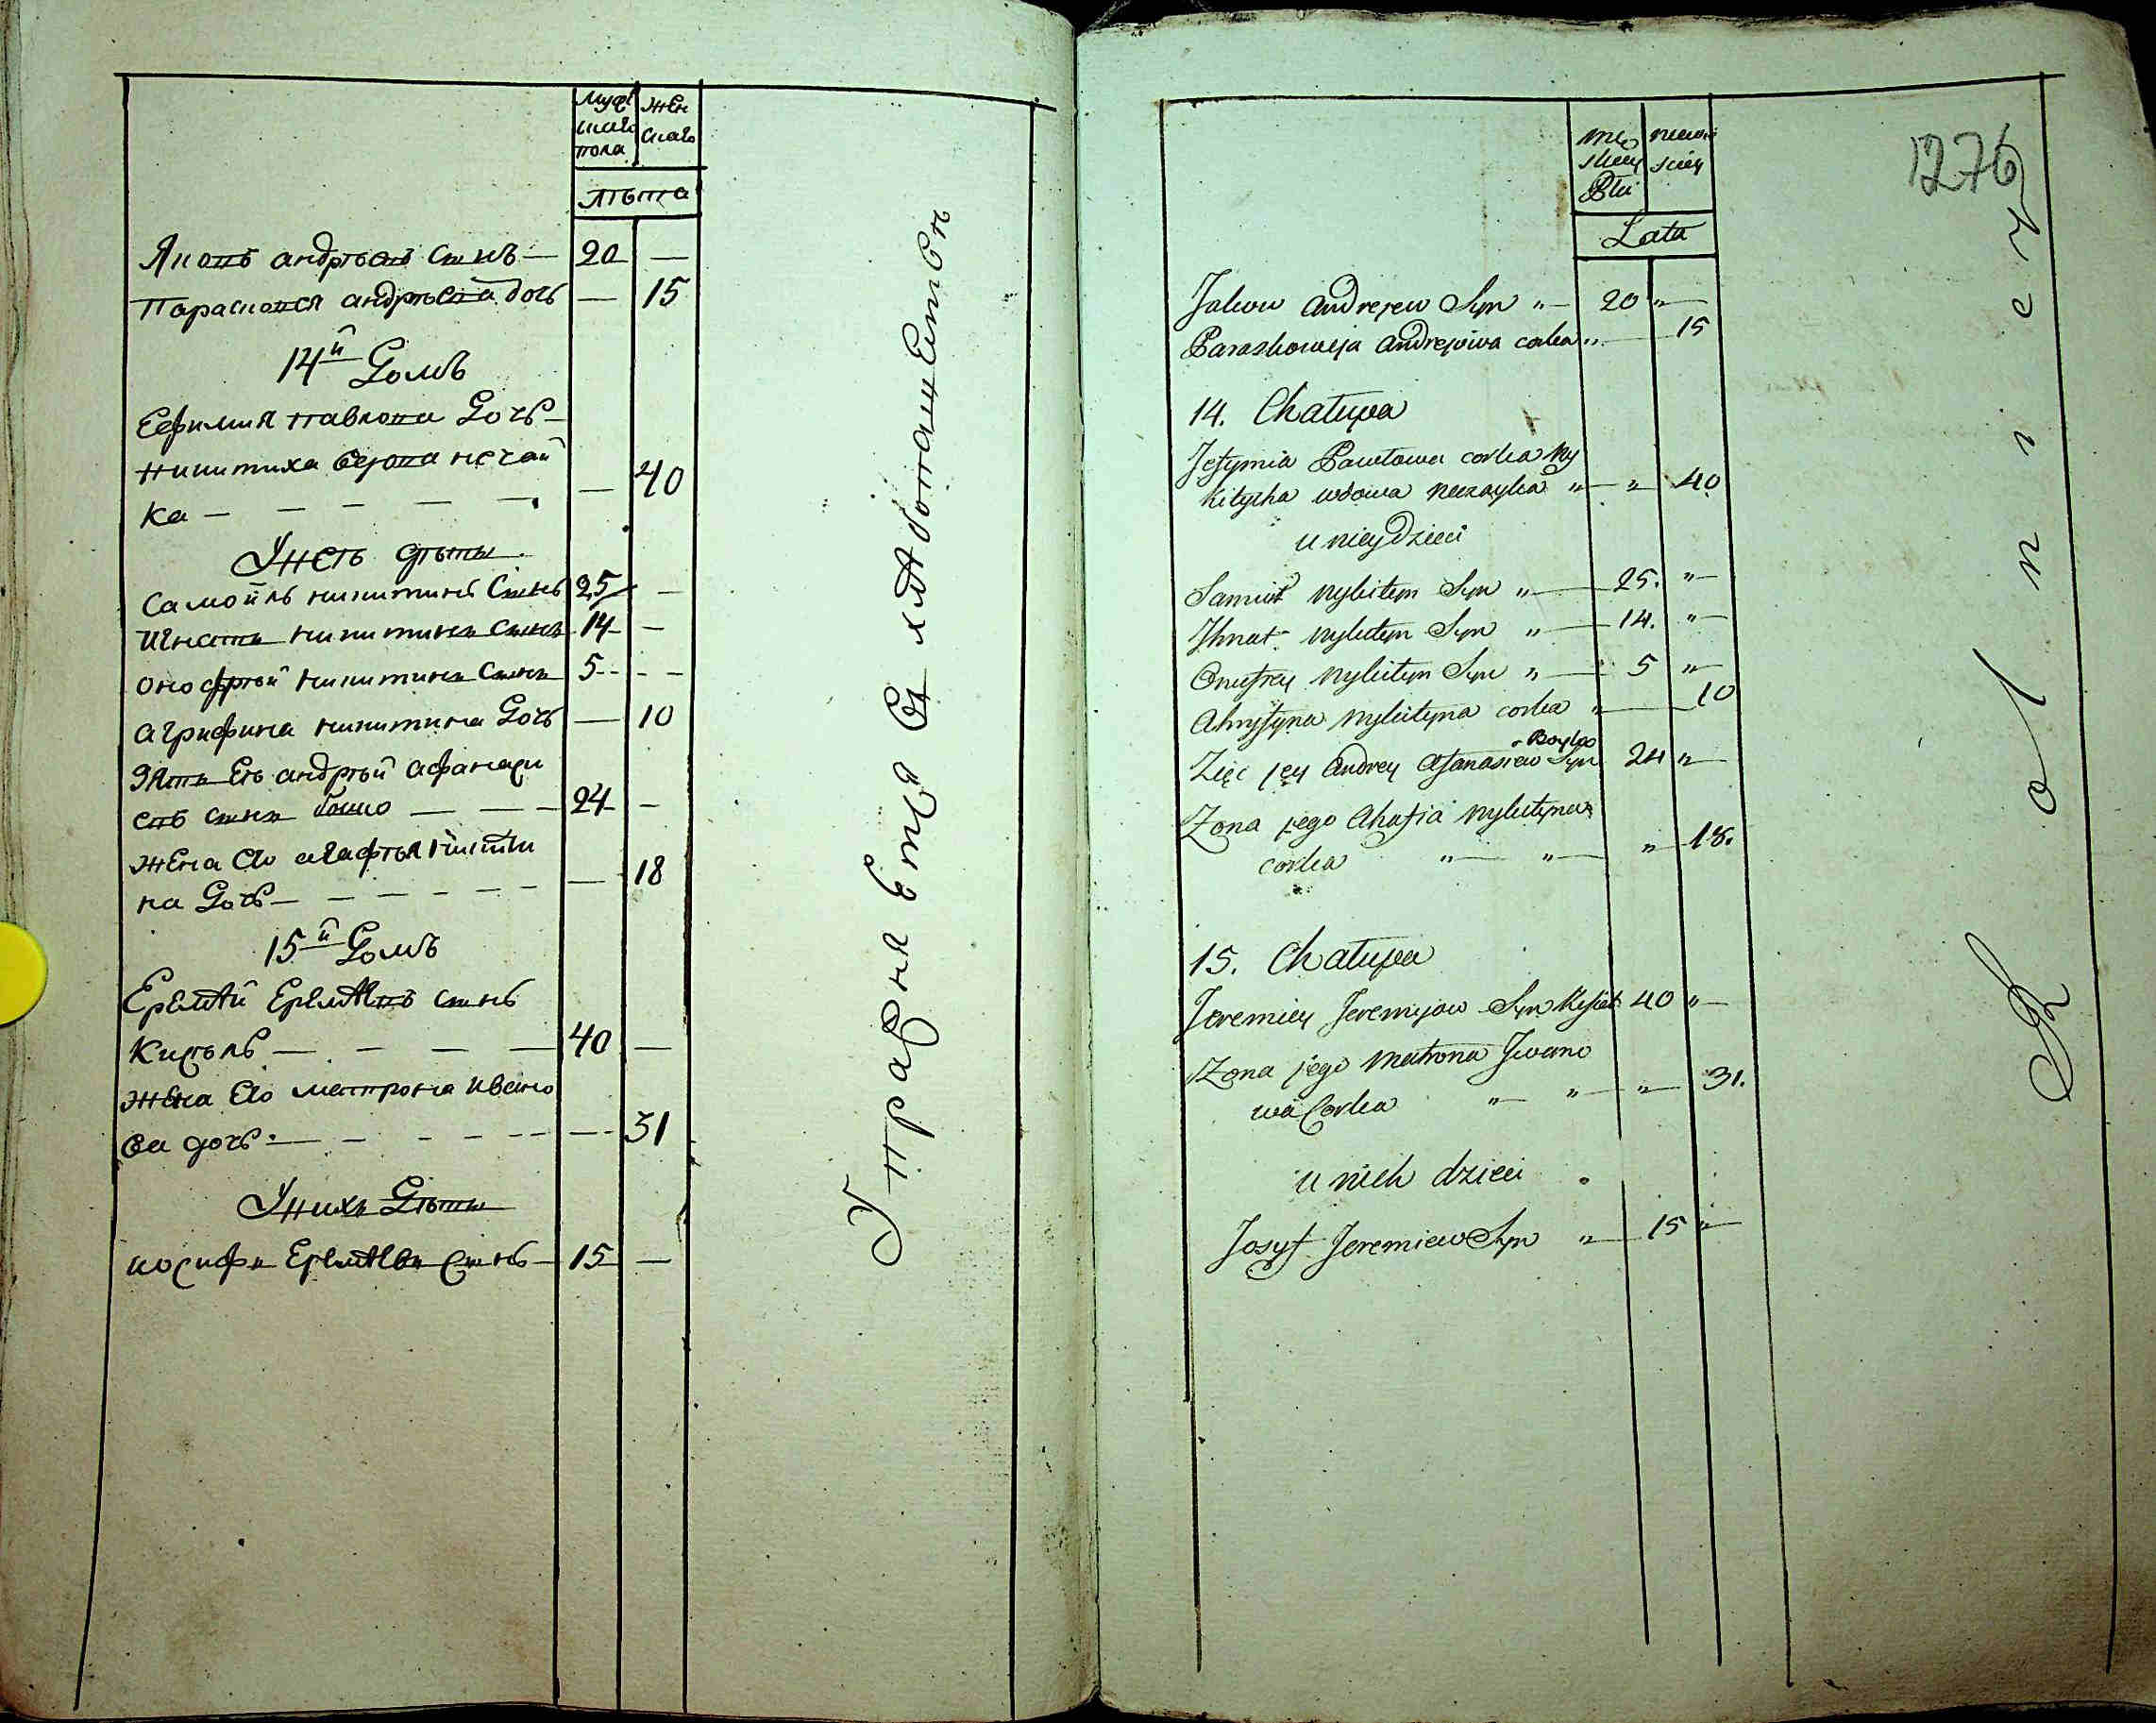 мужскаго пола
женскаго
лѣта
Яковъ андрѣевъ сынъ — 20 —
Парасковея андрѣева дочь — 15
14й Домъ
Еефимия павлова Дочь —
никитиха вдова нечай
ка — — — — — — 40
У неѣ дѣти
Самойлъ никитинъ Сынъ 25 —
Игнатъ никитинъ сынъ 14 —
Онофрѣй никитинъ сынъ 5 - - -
Агрифина никитина Дочь — 10
Зять Еѣ андрѣй афанаси
евъ сынъ бойко — — — 24 —
Жена Его агафѣя никити
на Дочь — — — — — — 18
15й Домъ
Еремѣй Еремѣевъ сынъ
Кисѣль — — — — 40 —
Жена Его матрона ивано
ва дочь — — — — — 31
У нихъ Дѣти
иосифъ Еремѣевъ Сынъ — 15 —
Управня Етця въ хлѣбопашествѣ
1276
męskey Płci
niewiesciey
Lata
Jakow Andrejew Syn „ — 20 „ —
Paraskoweja Andrejowa corka „ — 15
14. Chałupa
Jefymia Pawłowa corka Ny
kitycha wdowa Neczayka „ — „ 40
u niey Dzieci
Samuił Nykityn Syn „ — 25. „ —
Ihnat Nykityn Syn „ — 14. „ —
Onufrey Nykityn Syn „ — 5 „ —
Ahryfyna Nykityna corka „ — 10
Zięć jey Andrey Afanasiew Syn Boyko 24 „ —
Zona jego Ahafia Nykityna
corka „ — „ — „ — 18.
15. Chałupa
Jeremiey Jeremijow Syn Kisiel 40 „ —
Zona jego Matrona Iwano
wa Corka „ — „ — „ — 31.
u nich dzieci
Josyf Jeremiew Syn „ — 15 „ —
Rolniczy